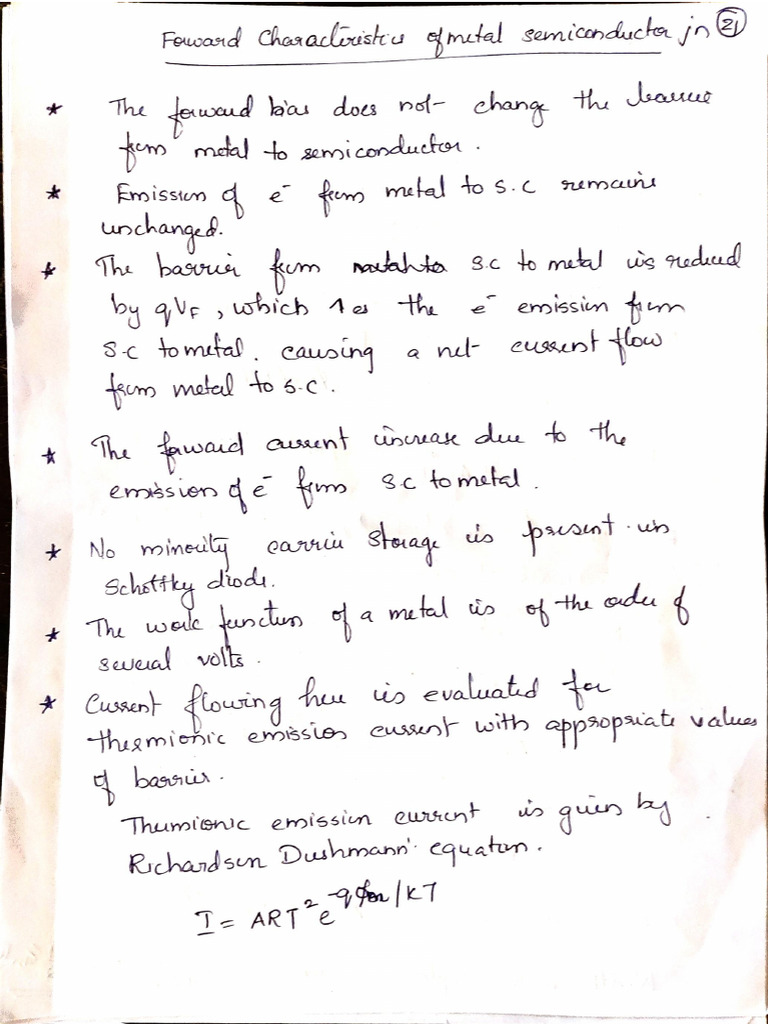 Forward Characteristics of metal semiconductor jn 21
* The forward bias does not change the barrier
from metal to semiconductor.
* Emission of e⁻ from metal to s.c remains
unchanged.
* The barrier from s.c to metal is reduced
by qVF, which ↑es the e⁻ emission from
s.c to metal. causing a net current flow
from metal to s.c.
* The forward current increase due to the
emission of e⁻ from s.c to metal.
* No minority carrier storage is present in
Schottky diode.
* The work function of a metal is of the order of
several volts.
* Current flowing here is evaluated for
thermionic emission current with appropriate values
of barrier.
Thermionic emission current is given by
Richardson Dushmann' equation.
I = ART² e